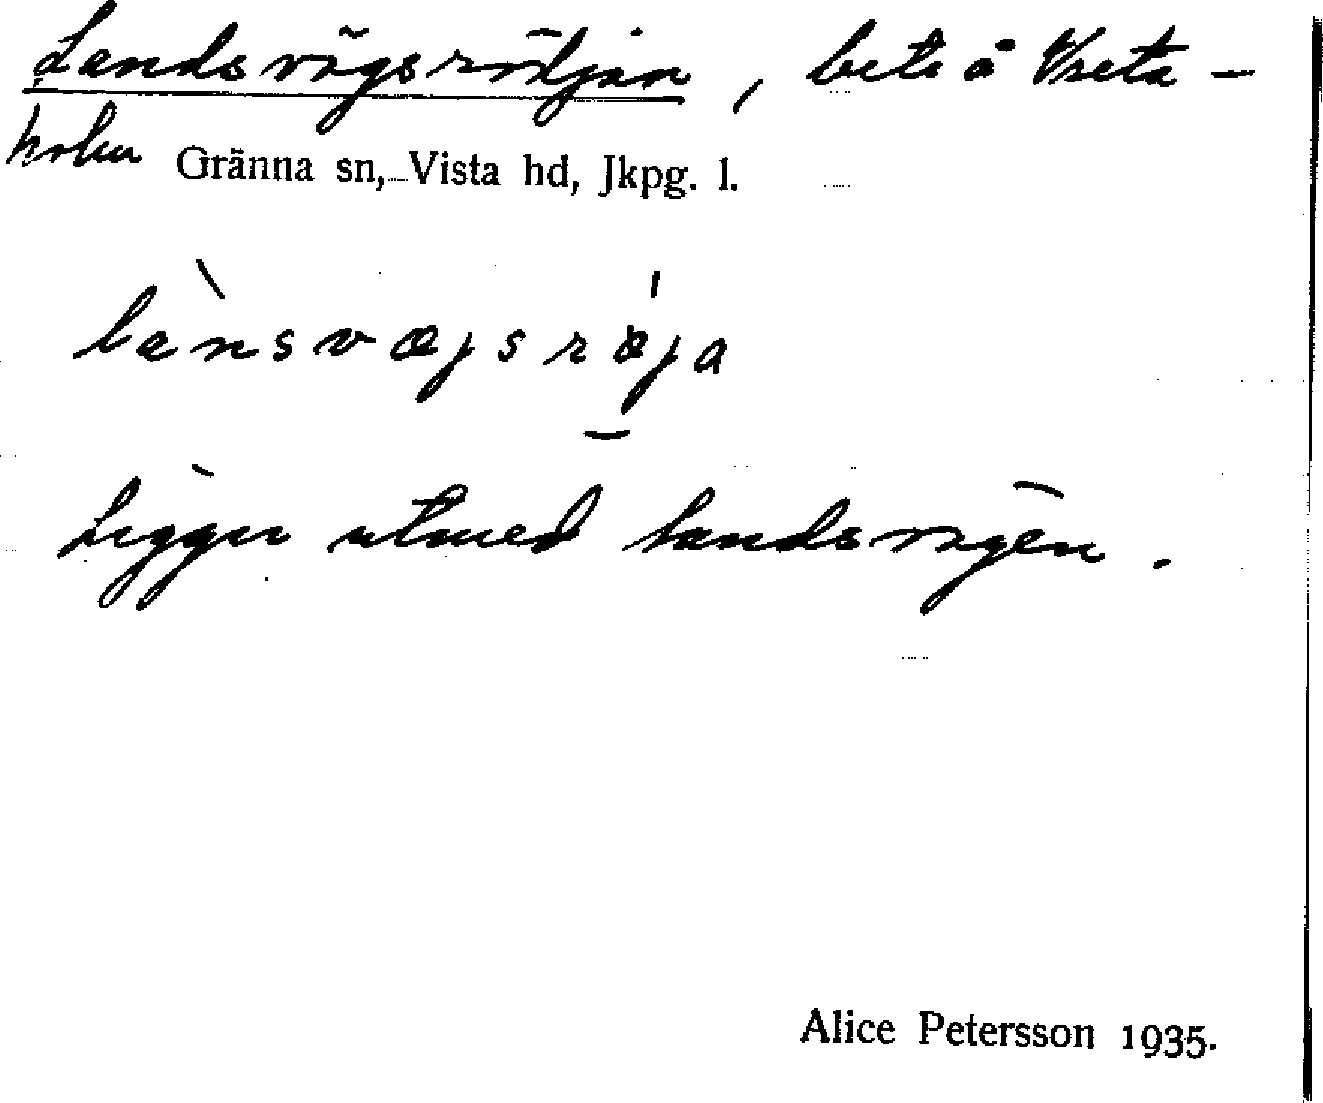 Landsvägsrödjan, bete å Vreta-
holm Gränna sn, Vista hd, Jkpg. l.
lànsvægsrǿja
Ligger utmed landsvägen.
Alice Petersson 1935.